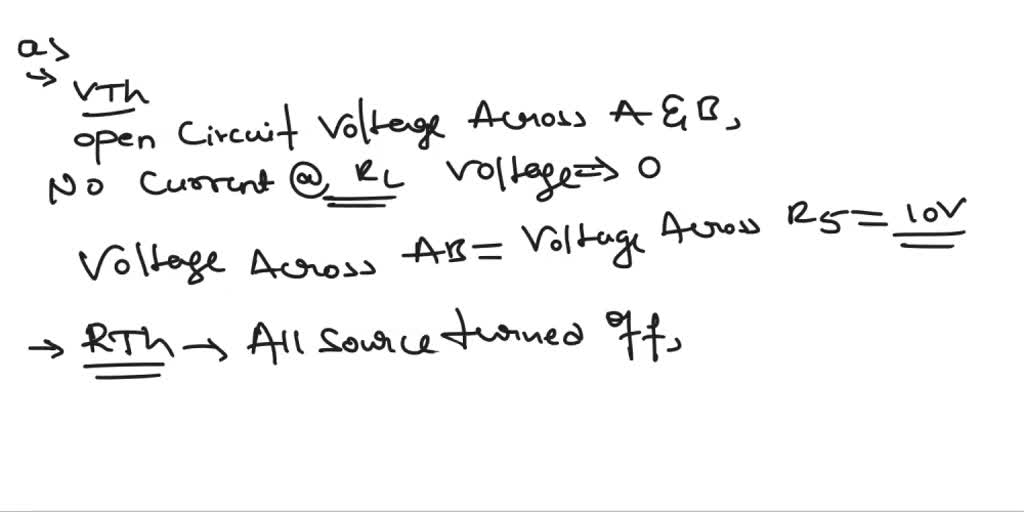 a>
→ VTh
open Circuit Voltage Across A & B,
No Current @ RL Voltage ⇒ 0
Voltage Across AB = Voltage Across R5 = 10V
→ RTh → All Source turned off,